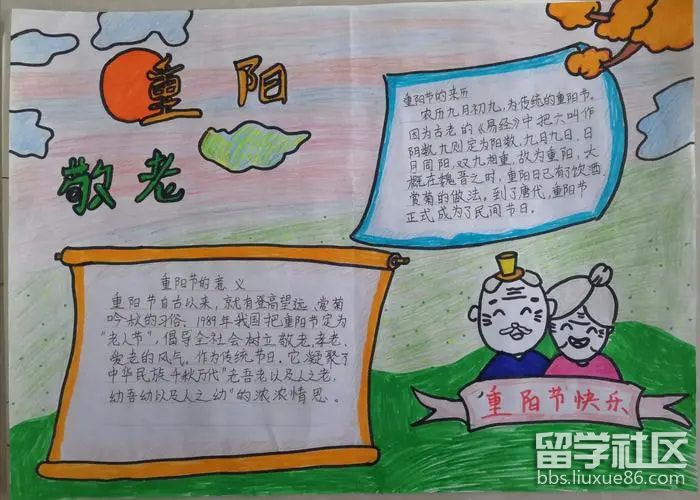 重阳
敬老
重阳节的来历
农历九月初九,为传统的重阳节。
因为古老的《易经》中把六叫作
阴数,九则定为阳数,九月九日,日
月同阳,双九相重,故为重阳,大
概在魏晋之时,重阳日已有了饮酒
赏菊的做法。到了唐代,重阳节
正式成为了民间节日。
重阳节的意义
重阳节自古以来,就有登高望远、赏菊
吟秋的习俗。1989年我国把重阳节定为
“老人节”,倡导全社会树立敬老、孝老、
爱老的风气。作为传统节日,它凝聚了
中华民族千秋万代“老吾老以及人之老,
幼吾幼以及人之幼”的浓浓情思。
重阳节快乐
留学社区
bbs.liuxue86.com